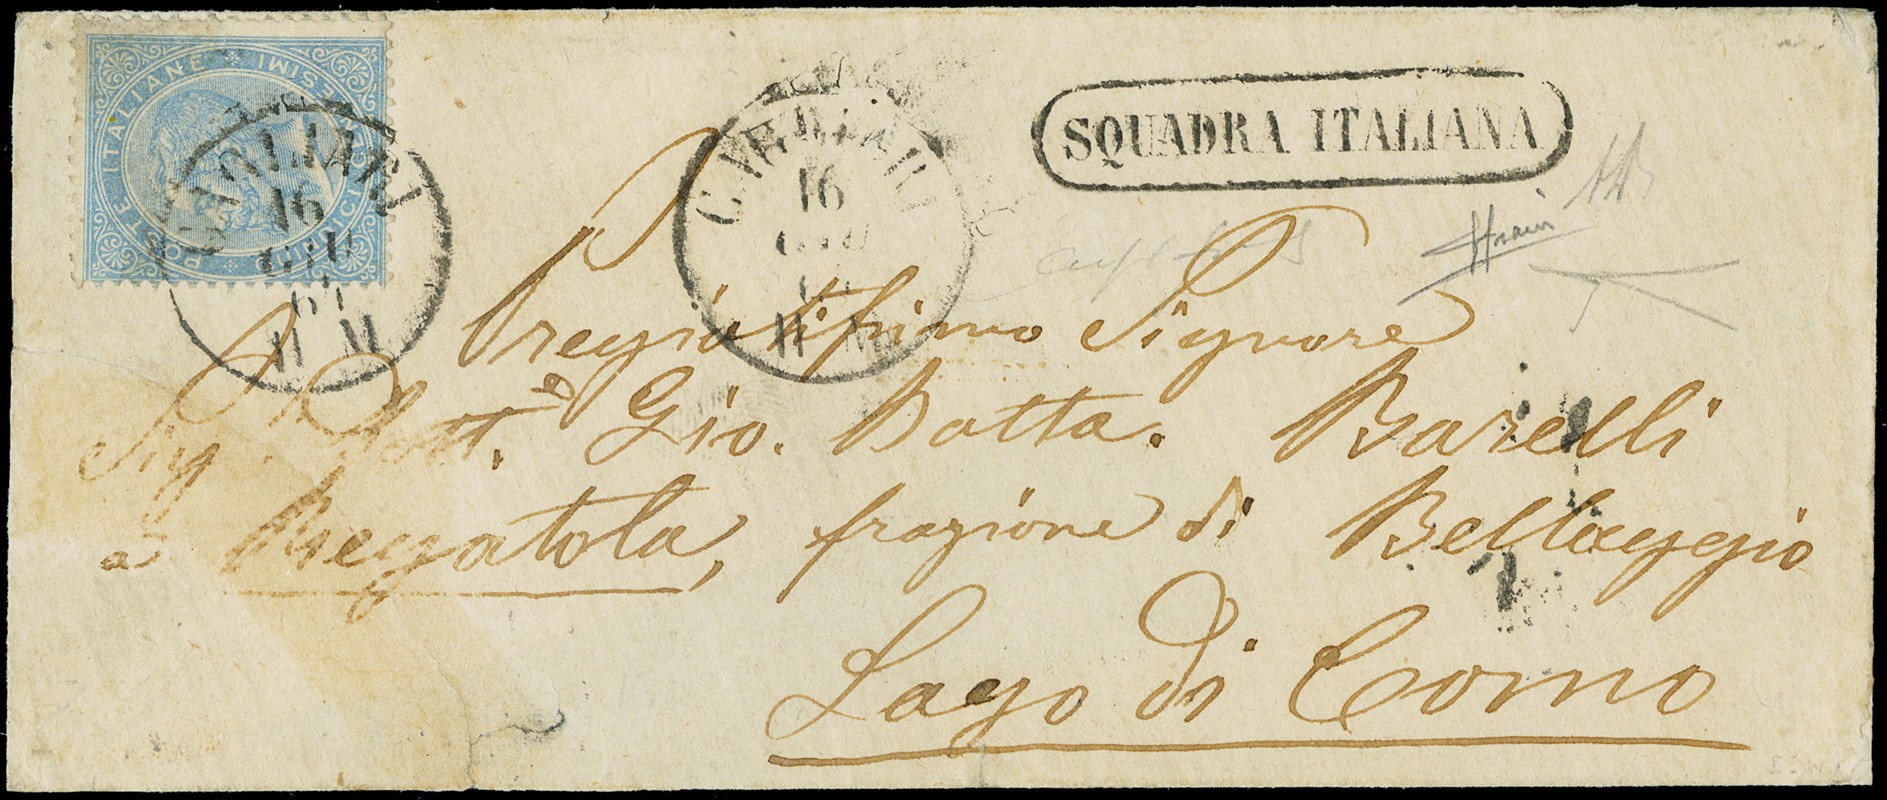 POSTE ITALIANE
CAGLIARI
16
GIU
64
11 M
CAGLIARI
16
GIU
11 M
SQUADRA ITALIANA
Pregiatissimo Signore
Sig. Dott.e Gio. Batta. Barelli
a Regatola, frazione di Bellaggio
Lago di Como